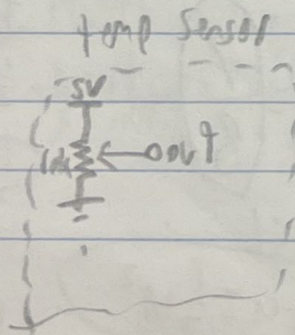 temp Sensor
5V
1k
out